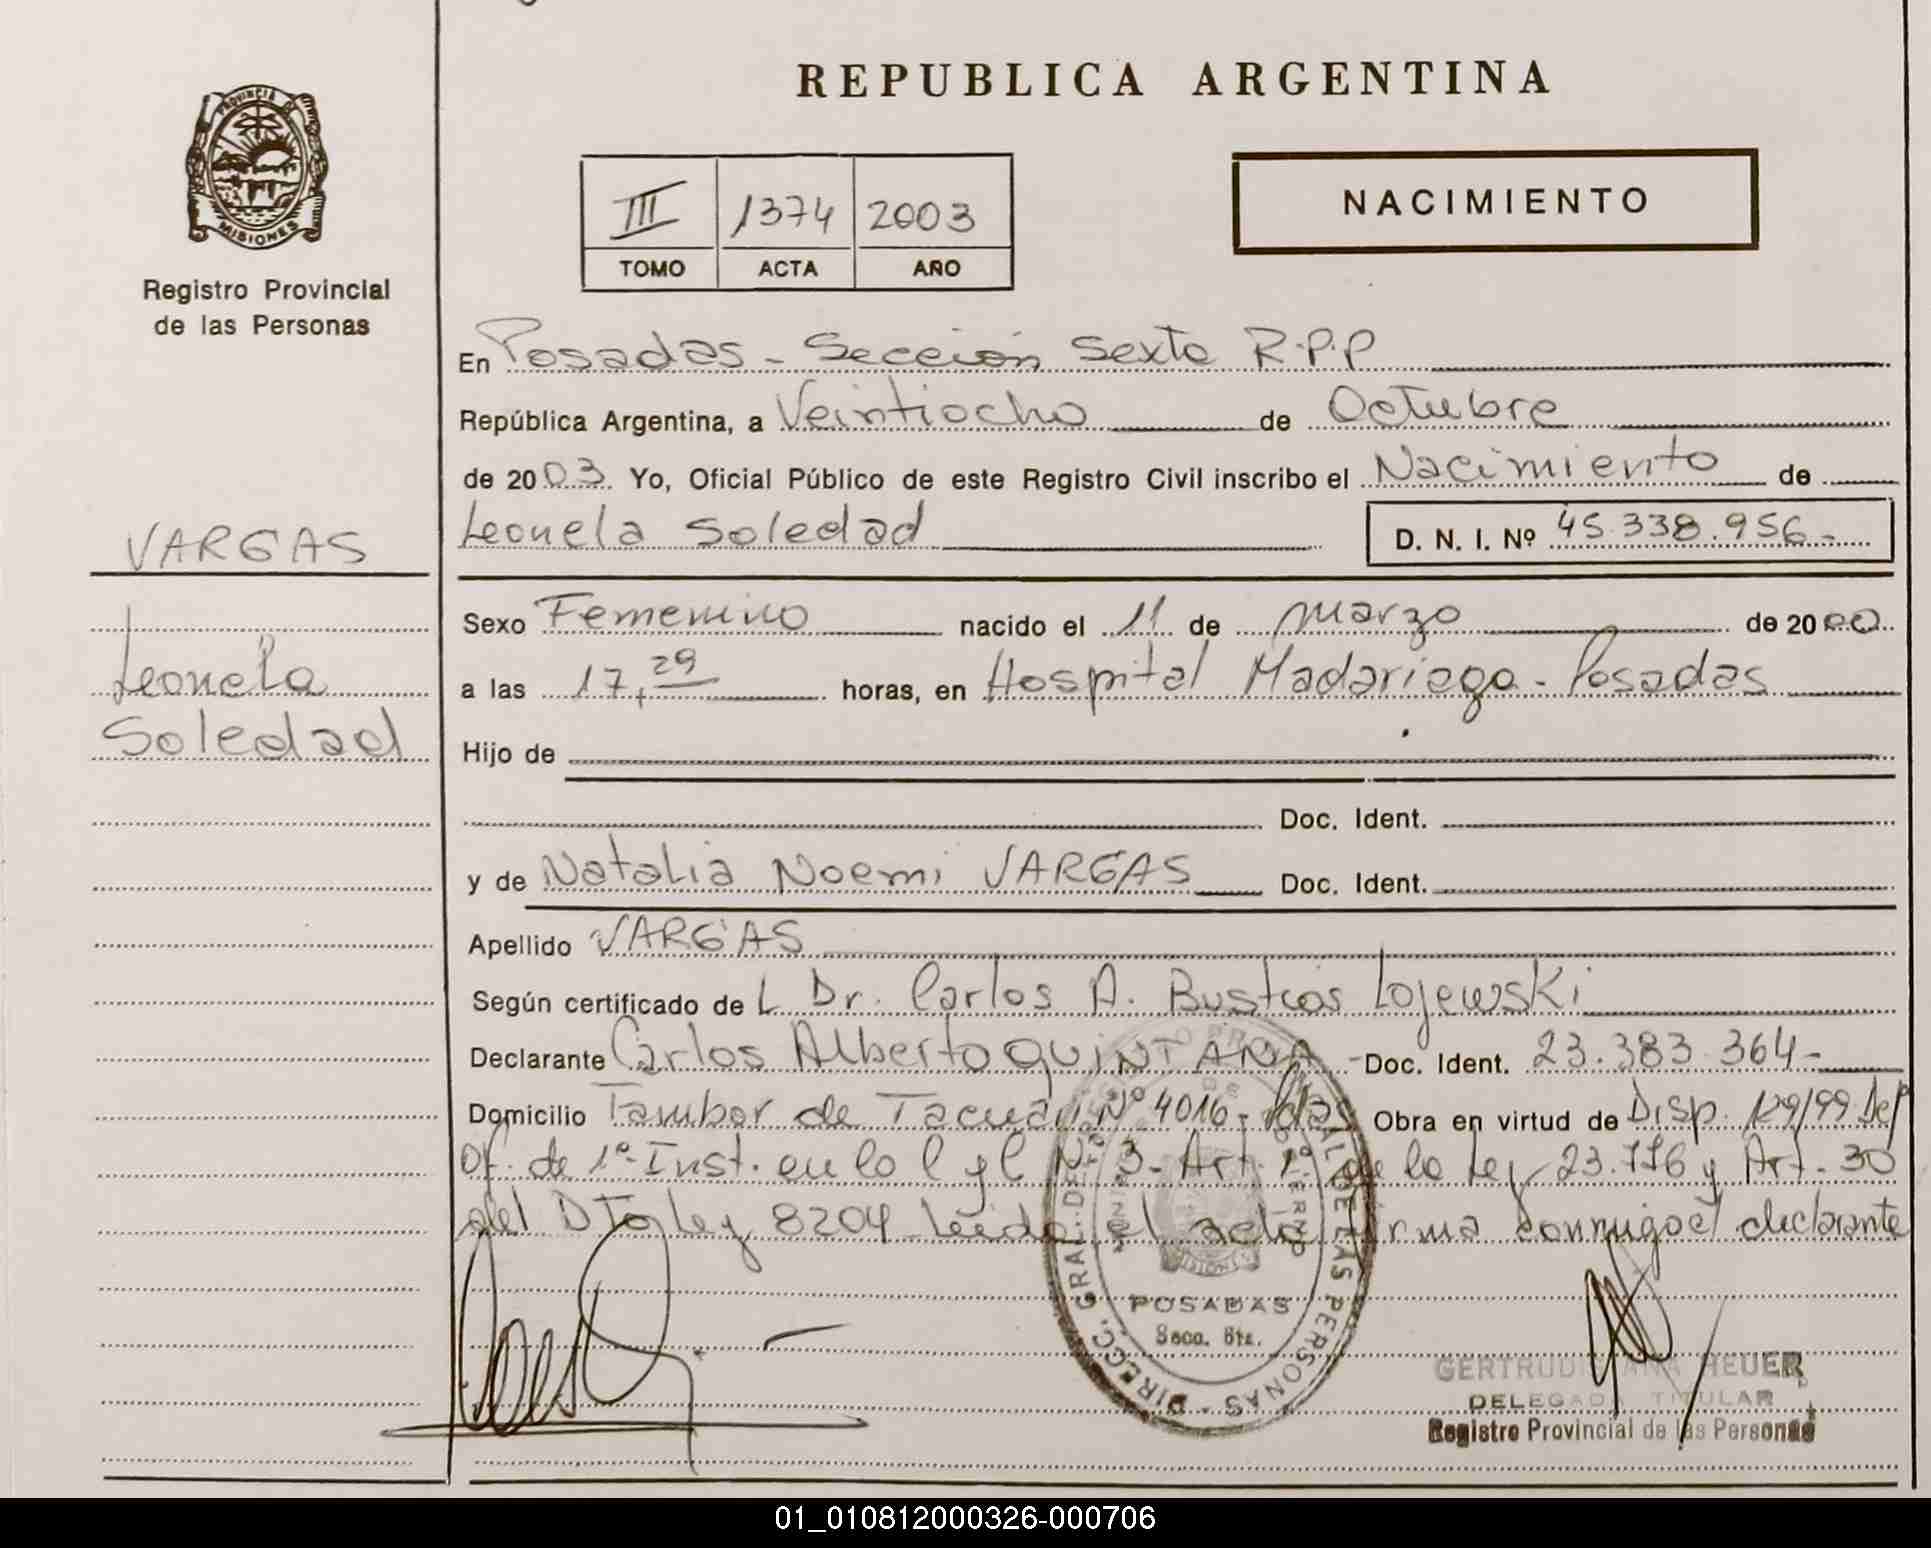 REPUBLICA ARGENTINA
PROVINCIA DE
MISIONES
Registro Provincial
de las Personas
III 1374 2003
TOMO ACTA AÑO
NACIMIENTO
En Posadas - Sección Sexta R.P.P
República Argentina, a Veintiocho de Octubre
de 2003. Yo, Oficial Público de este Registro Civil inscribo el Nacimiento de
VARGAS
Leonela Soledad D. N. I. Nº 45.338.956-
Sexo Femenino nacido el 11 de marzo de 2000
Leonela
a las 17,29 horas, en Hospital Madariaga - Posadas
Soledad
Hijo de
Doc. Ident.
y de Natalia Noemi VARGAS Doc. Ident.
Apellido VARGAS
Según certificado de L Dr. Carlos A. Bustios Lojewski
Declarante Carlos Alberto QUINTANA - Doc. Ident. 23.383.364-
Domicilio Tambor de Tacuari Nº 4016 - Pdas Obra en virtud de Disp. 129/99 Def
Of. de 1º Inst. en lo C y C Nº 3 - Art. 1º de la Ley 23.776 y Art. 30
del DTo Ley 8204 - Leida el acta firma conmigo el declarante
DIRECC. GRAL. DEL REGISTRO PROVINCIAL DE LAS PERSONAS
POSADAS
Secc. 6ta.
GERTRUDIS ANA HEUER
DELEGADA TITULAR
Registro Provincial de las Personas
01_010812000326-000706